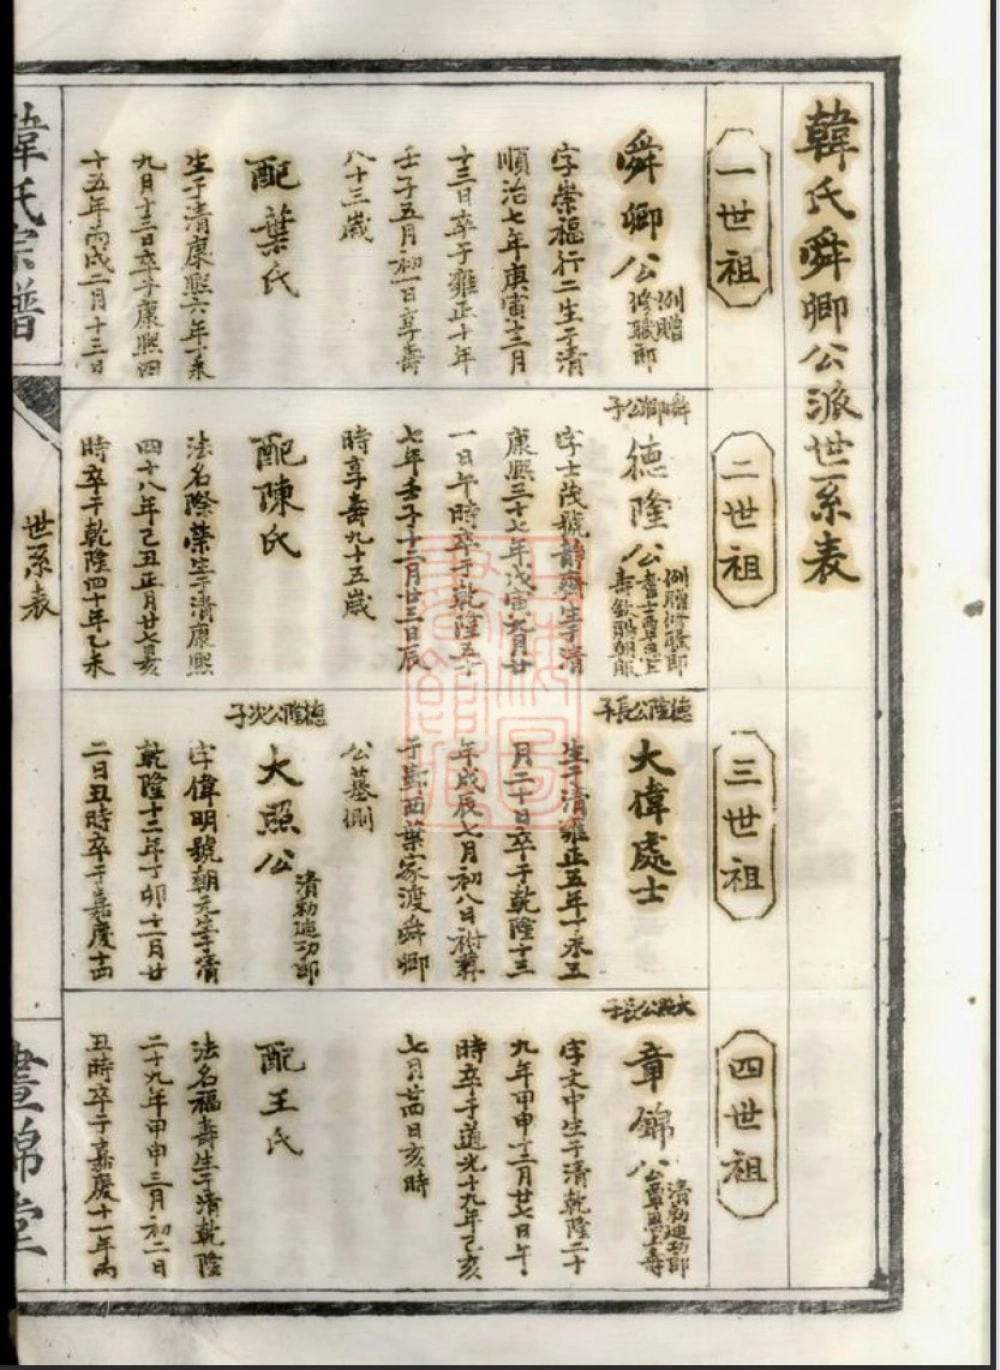 韓氏舜卿公派世系表
一世祖
舜卿公
例贈
修職郎
字崇福行二生于清
順治七年庚寅十二月
十三日卒于雍正十年
壬子五月初一日享壽
八十三歲
配葉氏
生于清康熙六年丁未
九月十三日卒于康熙四
十五年丙戌二月十三日
二世祖
舜卿公子
德隆公
例贈修職郎
耆士
壽欽賜朝服
字士茂號靜齋生于清
康熙三十七年戊寅九月廿
一日午時卒于乾隆五十
七年壬子十二月廿三日辰
時享壽九十五歲
配陳氏
法名際榮生于清康熙
四十八年己丑正月廿七日亥
時卒于乾隆四十年乙未
三世祖
德隆公長子
大偉處士
生于清雍正五年丁未五
月二十日卒于乾隆十三
年戊辰七月初八日祔葬
于鄞西葉家渡舜卿
公墓側
德隆公次子
大照公
清勅廸功郎
字偉明號朝元生于清
乾隆十二年丁卯十二月廿
二日丑時卒于嘉慶十四
四世祖
大照公長子
章錦公
清勅廸功郎
字文中生于清乾隆二十
九年甲申十二月廿七日午
時卒于道光十九年己亥
七月廿四日亥時
配王氏
法名福壽生于清乾隆
二十九年甲申三月初二日
丑時卒于嘉慶十一年丙
韓氏宗譜
世系表
晝錦堂